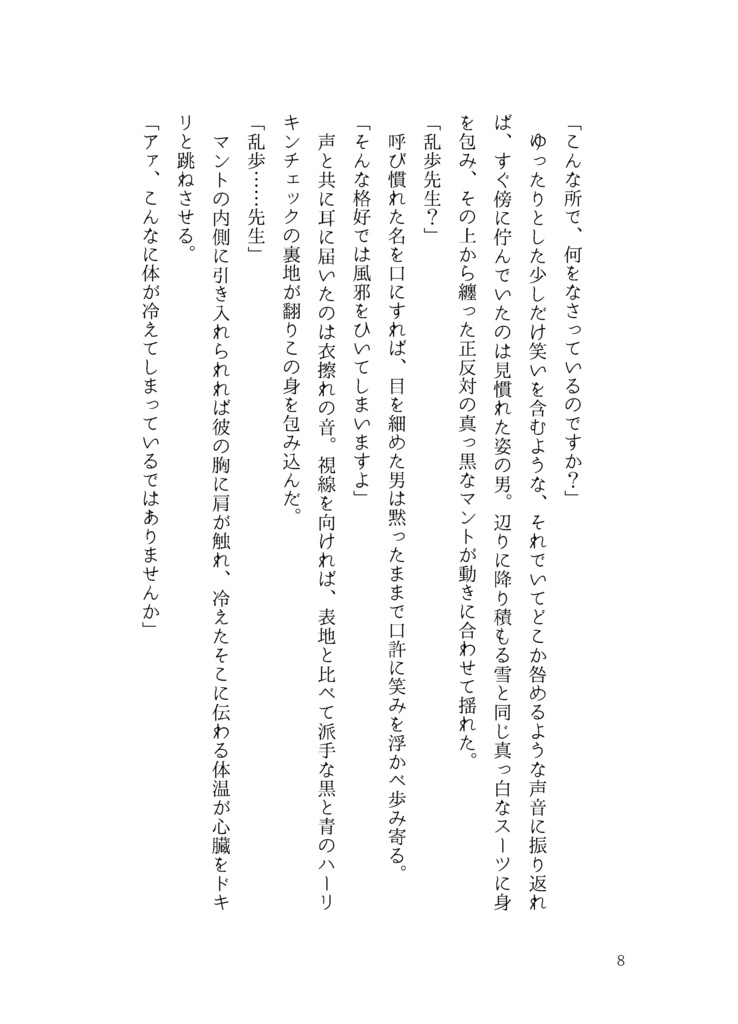 「こんな所で、何をなさっているのですか？」
　ゆったりとした少しだけ笑いを含むような、それでいてどこか咎めるような声音に振り返れ
ば、すぐ傍に佇んでいたのは見慣れた姿の男。辺りに降り積もる雪と同じ真っ白なスーツに身
を包み、その上から纏った正反対の真っ黒なマントが動きに合わせて揺れた。
「乱歩先生？」
　呼び慣れた名を口にすれば、目を細めた男は黙ったままで口許に笑みを浮かべ歩み寄る。
「そんな格好では風邪をひいてしまいますよ」
　声と共に耳に届いたのは衣擦れの音。視線を向ければ、表地と比べて派手な黒と青のハーリ
キンチェックの裏地が翻りこの身を包み込んだ。
「乱歩……先生」
　マントの内側に引き入れられれば彼の胸に肩が触れ、冷えたそこに伝わる体温が心臓をドキ
リと跳ねさせる。
「アァ、こんなに体が冷えてしまっているではありませんか」
8